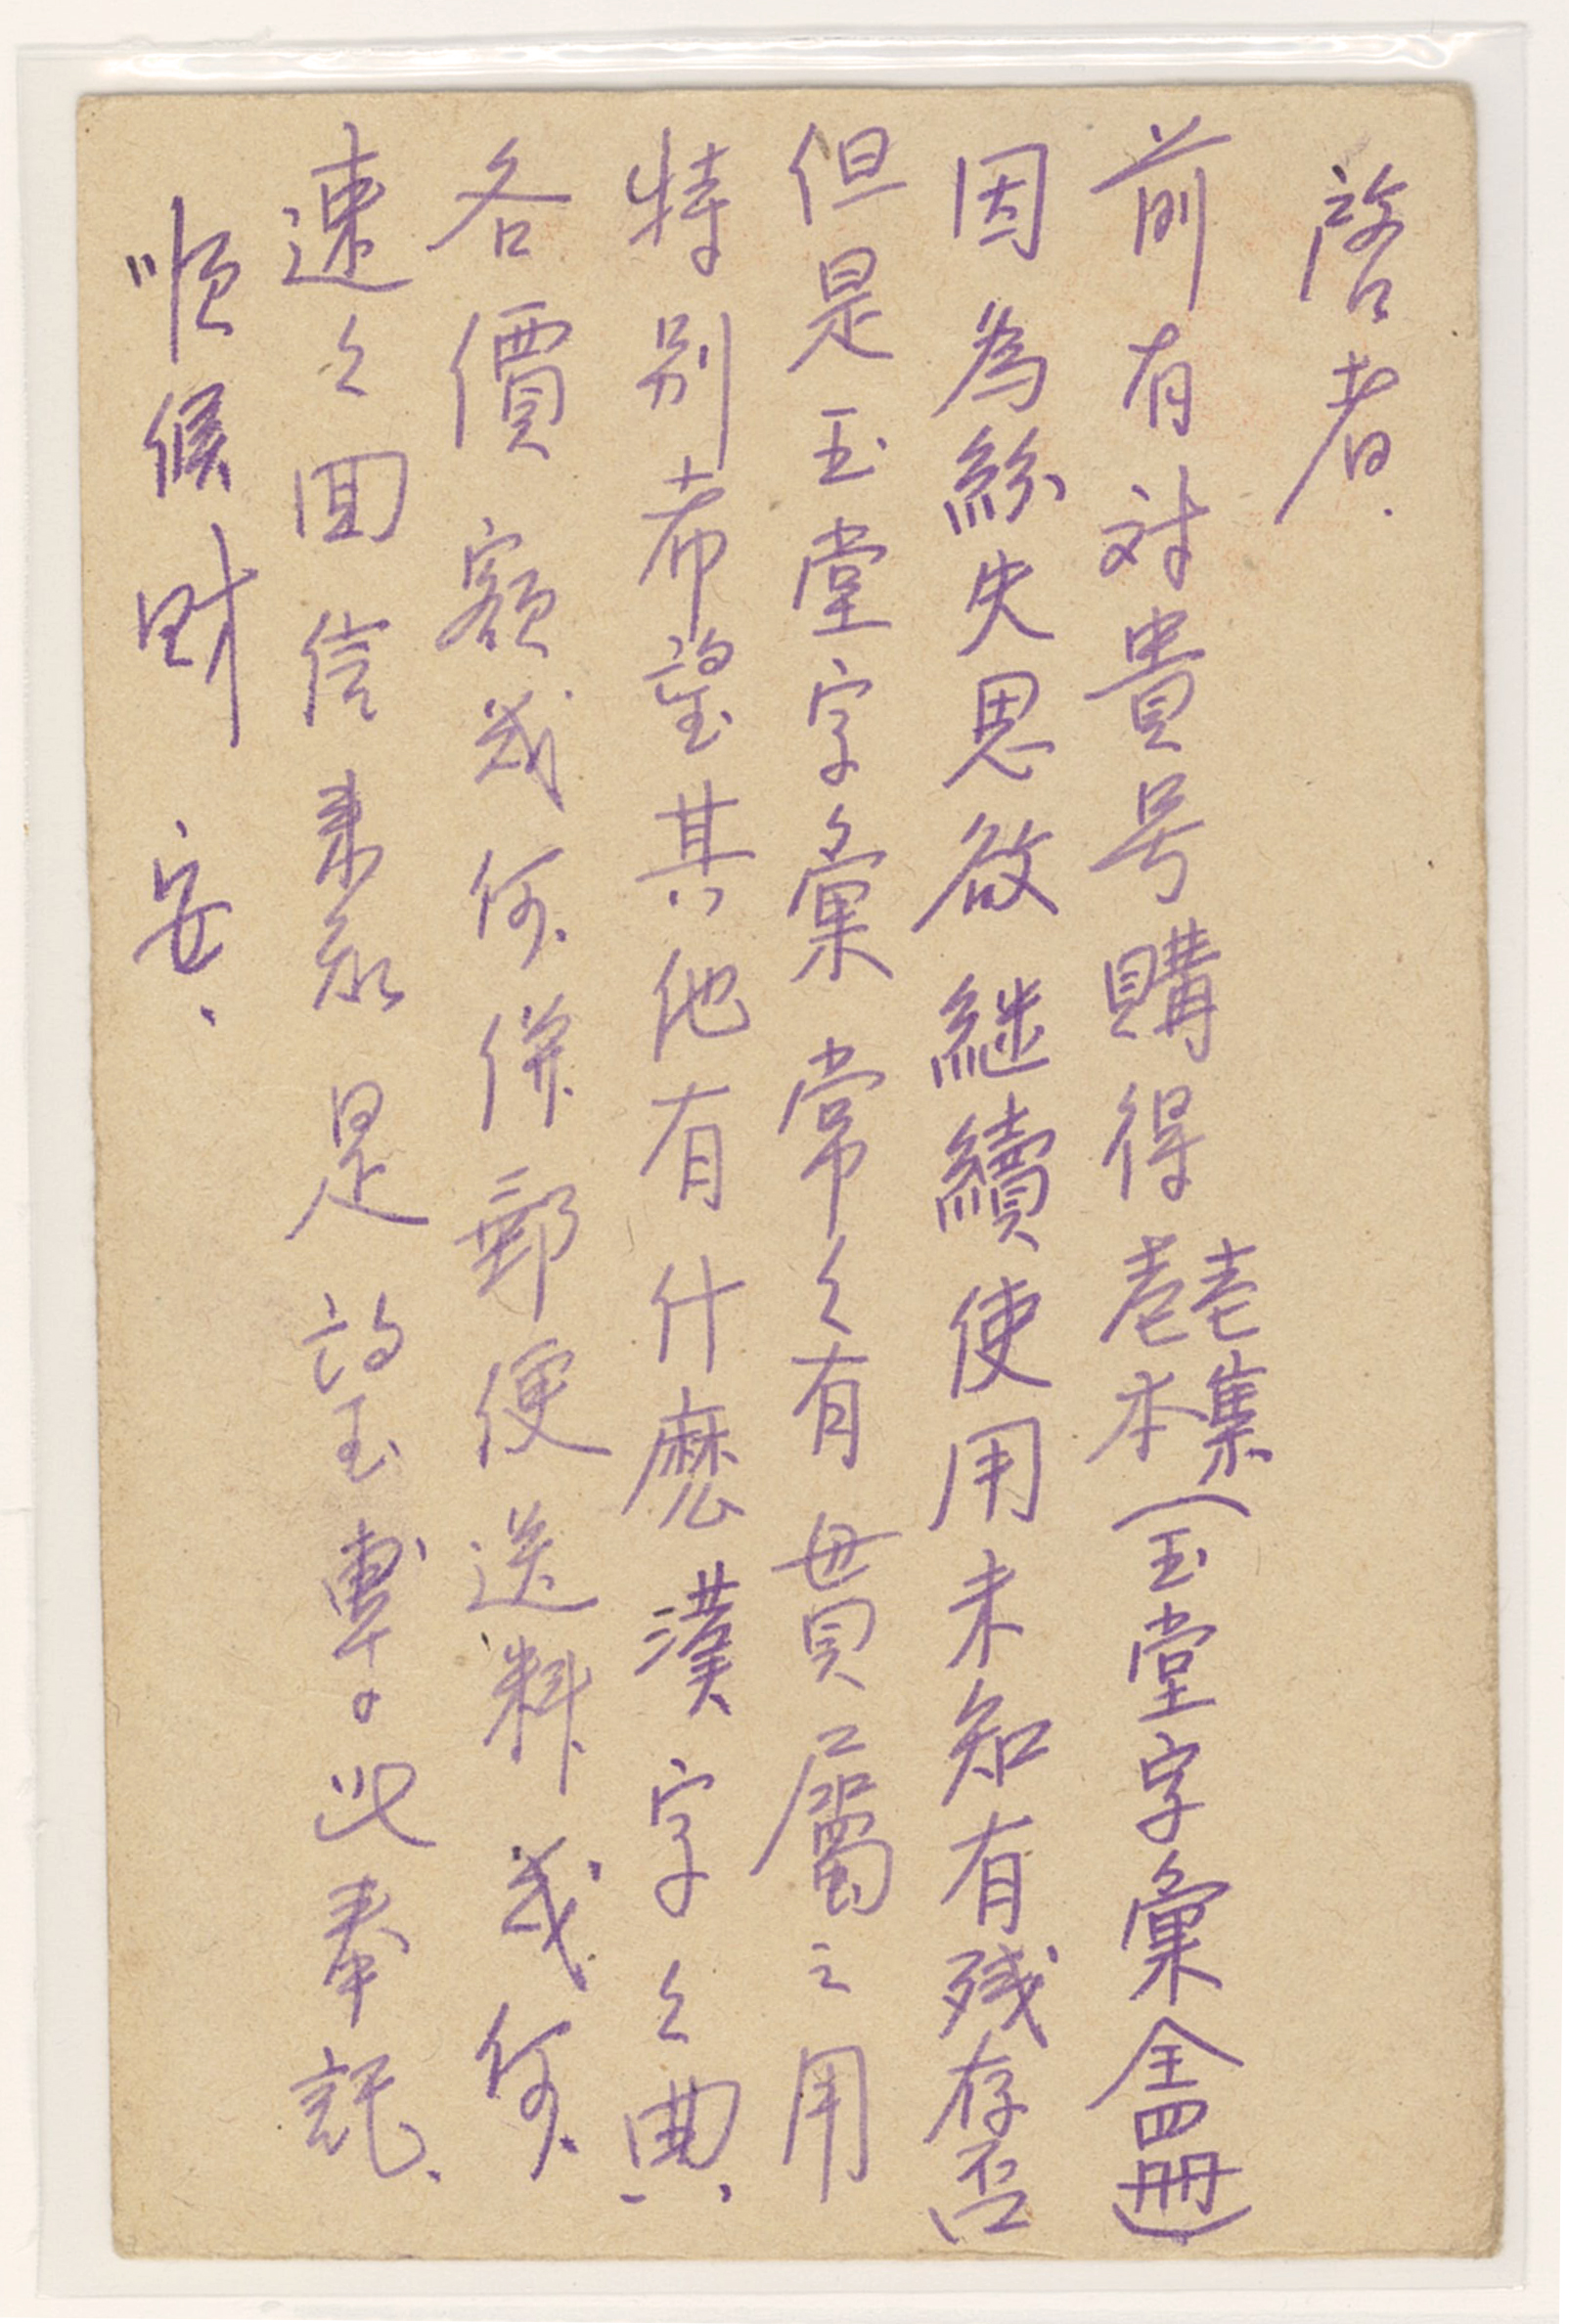 啓者.
前有対貴号購得壱集壱本(玉堂字彙全四冊)
因為紛失思欲継續使用未知有残存否
但是玉堂字彙常々有毌貝屬之用
特別希望其他有什麼漢字々典.
各價額幾何併郵便送料幾何.
速々回信来知是所至事。此奉託.
順候财安.